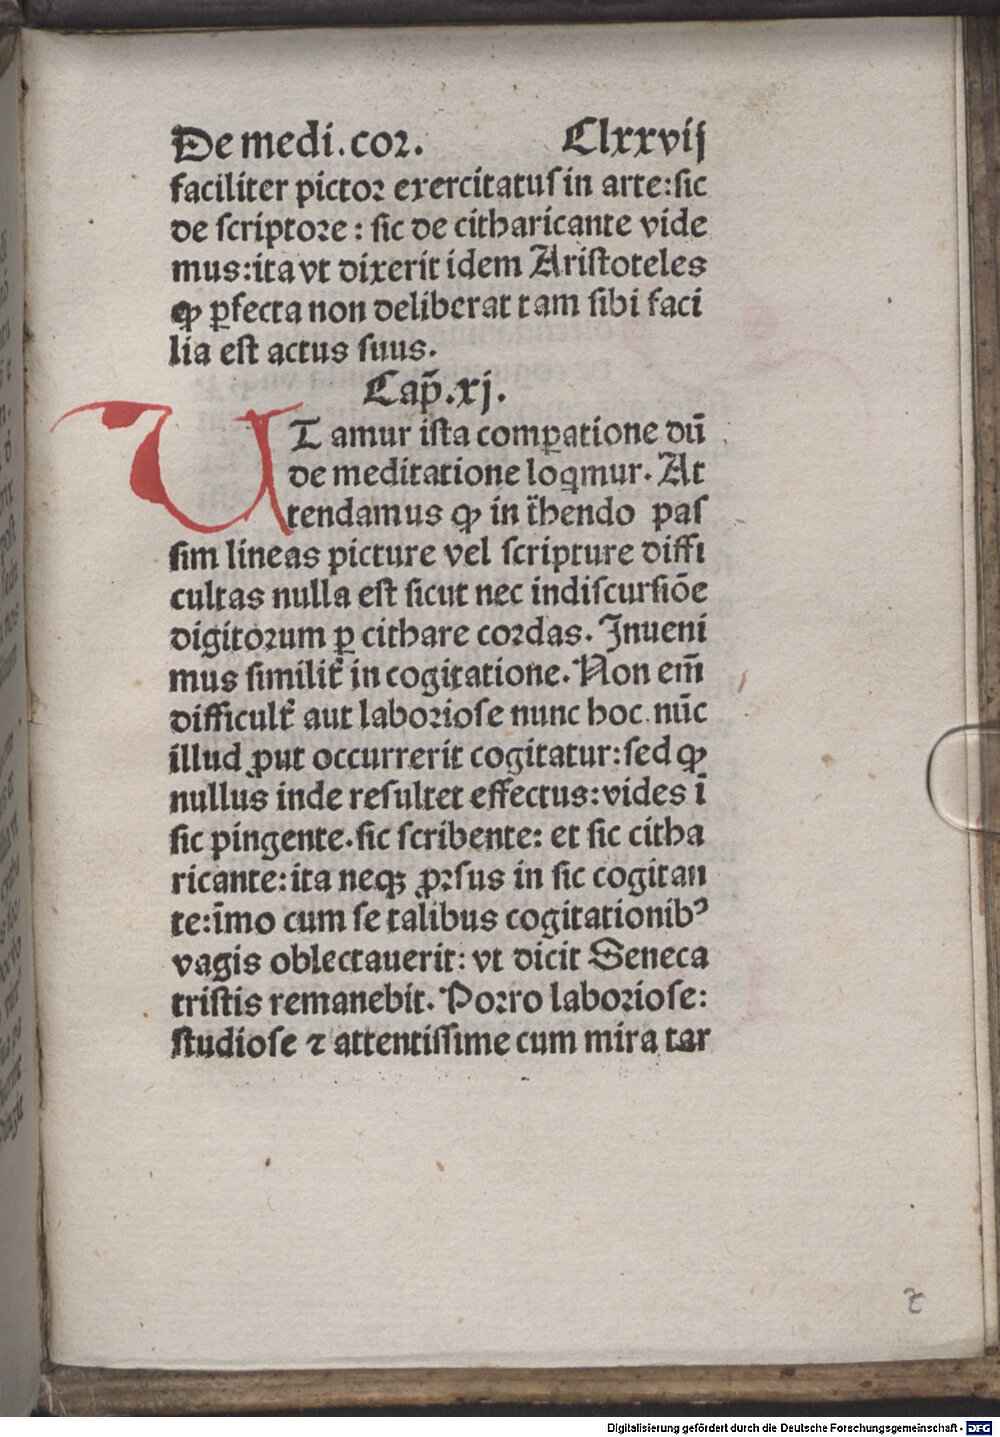 De medi. cor. Clxxvij
faciliter pictor exercitatus in arte: sic
de scriptore : sic de citharicante vide
mus: ita vt dixerit idem Aristoteles
ꝙ ꝑfecta non deliberat tam sibi faci
lia est actus suus.
Cap̃. xj.
UT amur ista comꝑatione dū
de meditatione loqmur. At
tendamus ꝙ in t̃hendo pas
sim lineas picture vel scripture diffi
cultas nulla est sicut nec indiscursiōe
digitorum ꝑ cithare cordas. Inueni
mus similit̃ in cogitatione. Non em̄
difficult̃ aut laboriose nunc hoc nūc
illud ꝓut occurrerit cogitatur: sed ꝙ
nullus inde resultet effectus: vides ī
sic pingente. sic scribente: et sic citha
ricante: ita neqꝫ ꝓrsus in sic cogitan
te: īmo cum se talibus cogitationibꝰ
vagis oblectauerit: vt dicit Seneca
tristis remanebit. Porro laboriose:
studiose ⁊ attentissime cum mira tar
z
Digitalisierung gefördert durch die Deutsche Forschungsgemeinschaft - DFG